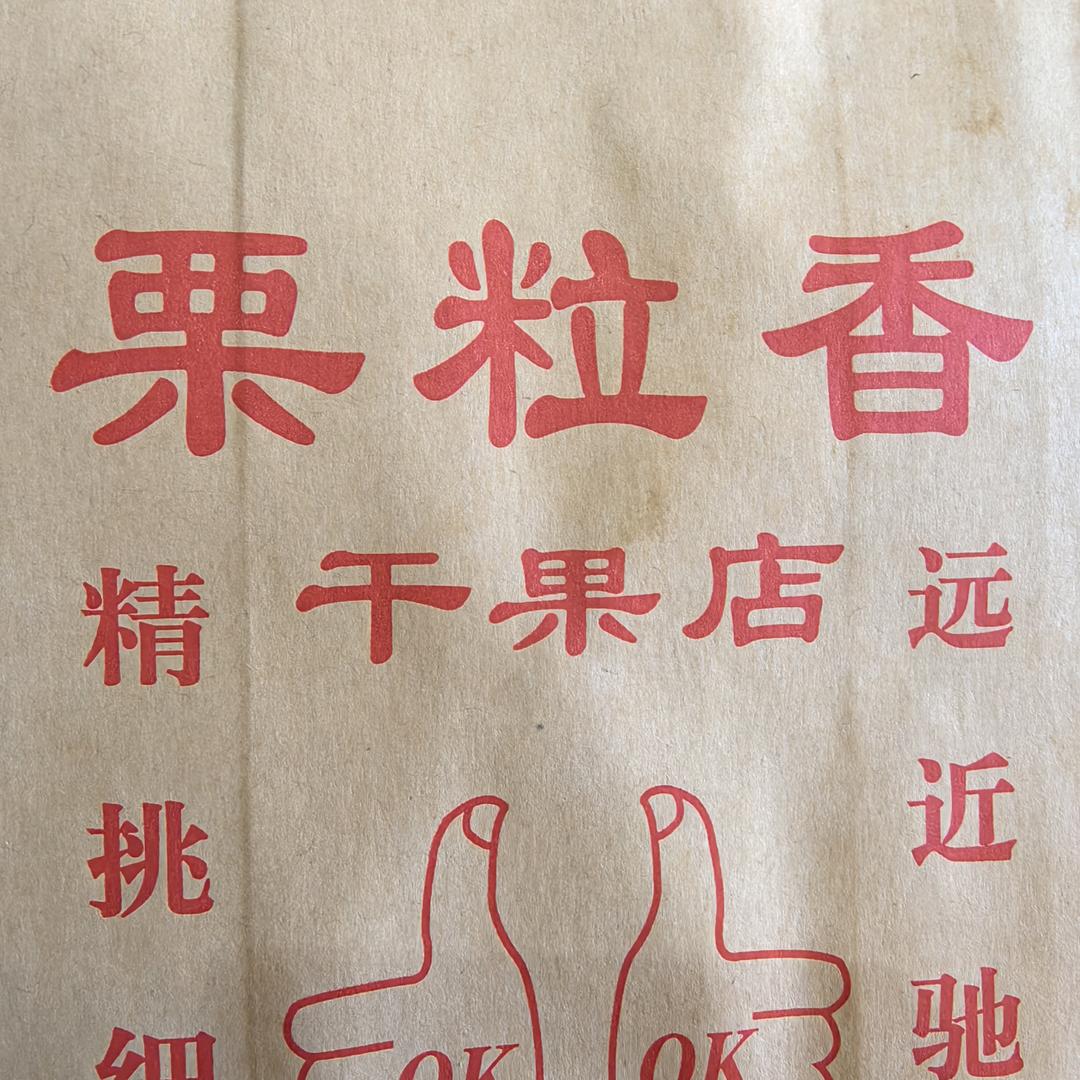 栗粒香
干果店
精挑细
远近驰
OK OK